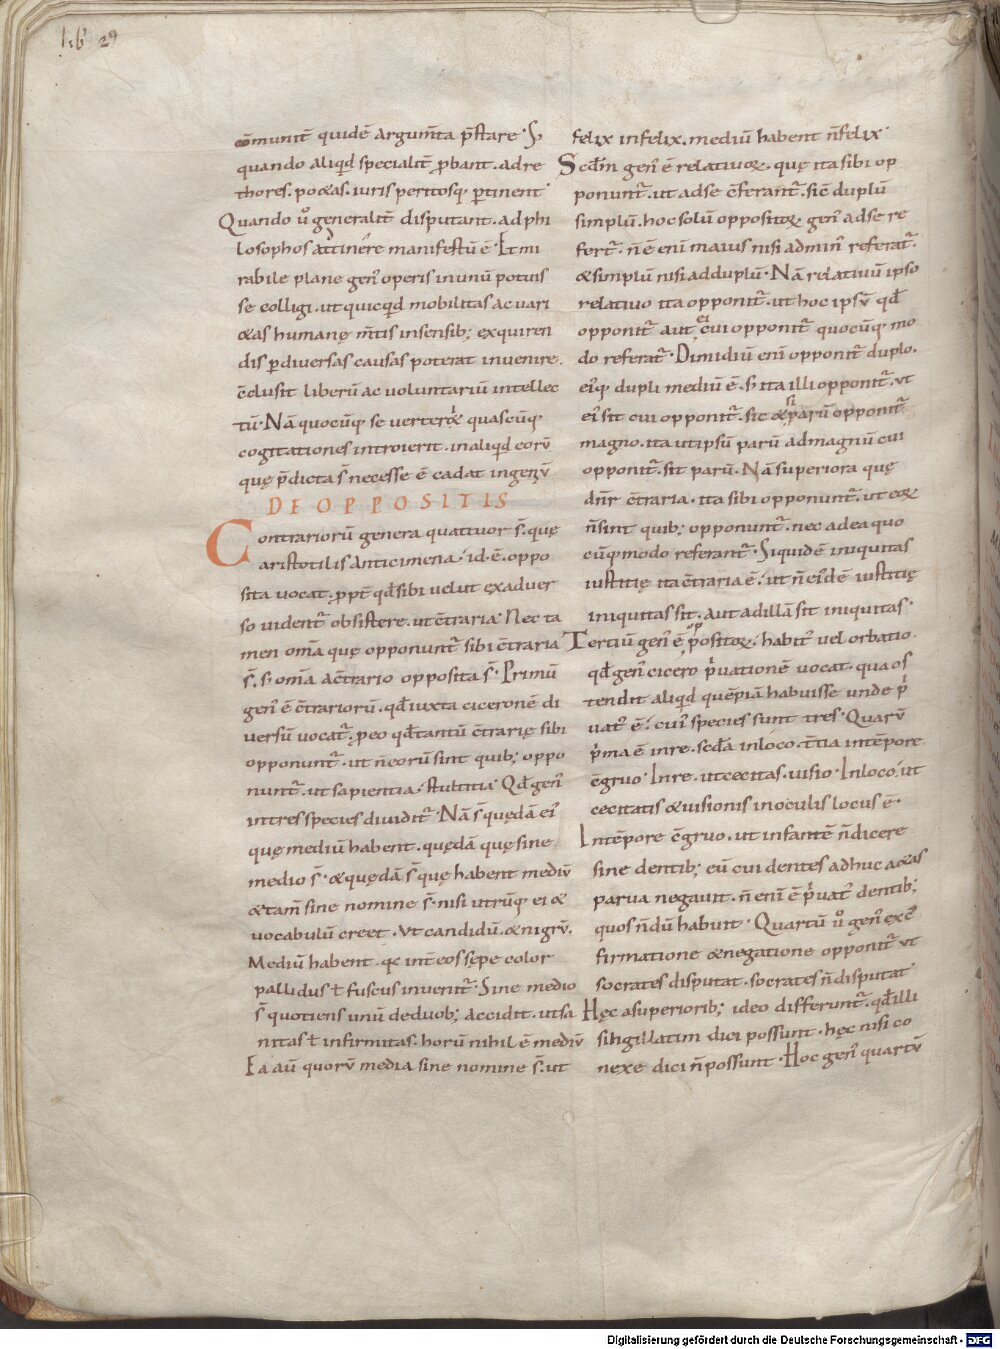 lib 29
cōmunit̄ quidē argum̄ta p̄stare · S;
quando aliqd̄ specialit̄ ꝓbant · ad re
thores · po&as · iuris peritosq; ꝑtinent ·
Quando ů generalit̄ disputant · ad phi
losophos attinere manifestū ē · Et mi
rabile plane gen̄ operis in unū potuis
se colligi · ut quicqd̄ mobilitas ac uari
&as humanę m̄tis in sensib; exquiren
dis ꝑ diuersas causas poterat inuenire ·
c̄clusit liberū ac uoluntariū intellec
tū · Nā quocūq; se uerterit & quascūq;
cogitationes introierit · in aliqd̄ eorū
quę p̄dicta s̄ necesse ē cadat ingeniū
DE OPPOSITIS
Contrariorū genera quattuor s̄ · quę
aristotilis anticimena · id · ē · oppo
sita uocat · ꝓpt̄ qd̄ sibi uelut ex aduer
so uident̄ obsistere · ut c̄traria · Nec ta
men om̄a quę opponunt̄ sibi c̄traria
s̄ · s; om̄a a c̄trario opposita s̄ · Primū
gen̄ ē c̄trariorū · qd̄ iuxta ciceronē di
uersū uocat̄ · ꝓ eo qd̄ tantū c̄trarię sibi
opponunt̄ · ut n̄ eorū sint quib; oppo
nunt̄ · ut sapientia · stultitia · Qd̄ gen̄
in tres species diuidit̄ · Nā s̄ quędā ei
quę mediū habent · quędā quę sine
medio s̄ · & quędā s̄ quę habent mediū
& tam̄ sine nomine s̄ · nisi utrūq; ei &
uocabulū creet · Ut candidū · & nigrū ·
Mediū habent · qa int̄ eos sępe color
pallidus ł fuscus inuenit̄ · Sine medio
s̄ quotiens unū de duob; accidit · ut sa
nitas ł infirmitas · horū nihil ē mediū
Ea aū quorū media sine nomine s̄ · ut
felix infelix · mediū habent n̄ felix ·
Scd̄m gen̄ ē relatiuoꝝ · quę ita sibi op
ponunt̄ · ut ad se c̄ferant̄ · sic̄ duplū
simplū · hoc solū oppositoꝝ gen̄ ad se re
fert̄ · n̄ ē enī maius nisi ad min̄ referat̄ ·
& simplū nisi ad duplū · Nā relatiuū ipso
relatiuo ita opponit̄ · ut hoc ipsū qd̄
opponit̄ aut ei cui opponit̄ quocūq; mo
do referat̄ · Dimidiū enī opponit̄ duplo ·
eiq; dupli mediū ē · s; ita illi opponit̄ · ut
ei sit cui opponit̄ · sic & si parū opponit̄
magno · ita ut ipsū parū ad magnū cui
opponit̄ · sit parū · Nā superiora quę
dn̄r c̄traria · ita sibi opponunt̄ · ut eoꝝ
n̄ sint quib; opponunt̄ · nec ad ea quo
cūq; modo referant̄ · Siquidē iniquitas
iustitię ita c̄traria ē · ut n̄ eide ē iustitię
iniquitas sit · aut ad illā sit iniquitas ·
Tertiū gen̄ ē oppositoꝝ · habit̄ uel orbatio ·
qd̄ gen̄ cicero p̍uationē uocat · qua os
tendit aliqd̄ quēpiā habuisse unde p̍
uat̄ ē · cui species sunt tres · Quarū
p̍ma ē in re · scd̄a in loco · t̄tia in tēpore
c̄gruo · In re · ut cecitas · uisio · In loco · ut
cecitatis & uisionis in oculis locus ē ·
In tēpore c̄gruo · ut infantē n̄ dicere
sine dentib; eū cui dentes adhuc a&as
parua negauit · n̄ enī ē p̍uat̄ dentib;
quos n̄dū habuit · Quartū ů gen̄ ex c̄
firmatione & negatione opponit̄ ut
socrates disputat · socrates n̄ disputat ·
Hęc a superiorib; ideo differunt̄ · qd̄ illi
singillatim dici possunt · hęc nisi co
nexe dici n̄ possunt · Hoc gen̄ quartū
Digitalisierung gefördert durch die Deutsche Forschungsgemeinschaft - DFG